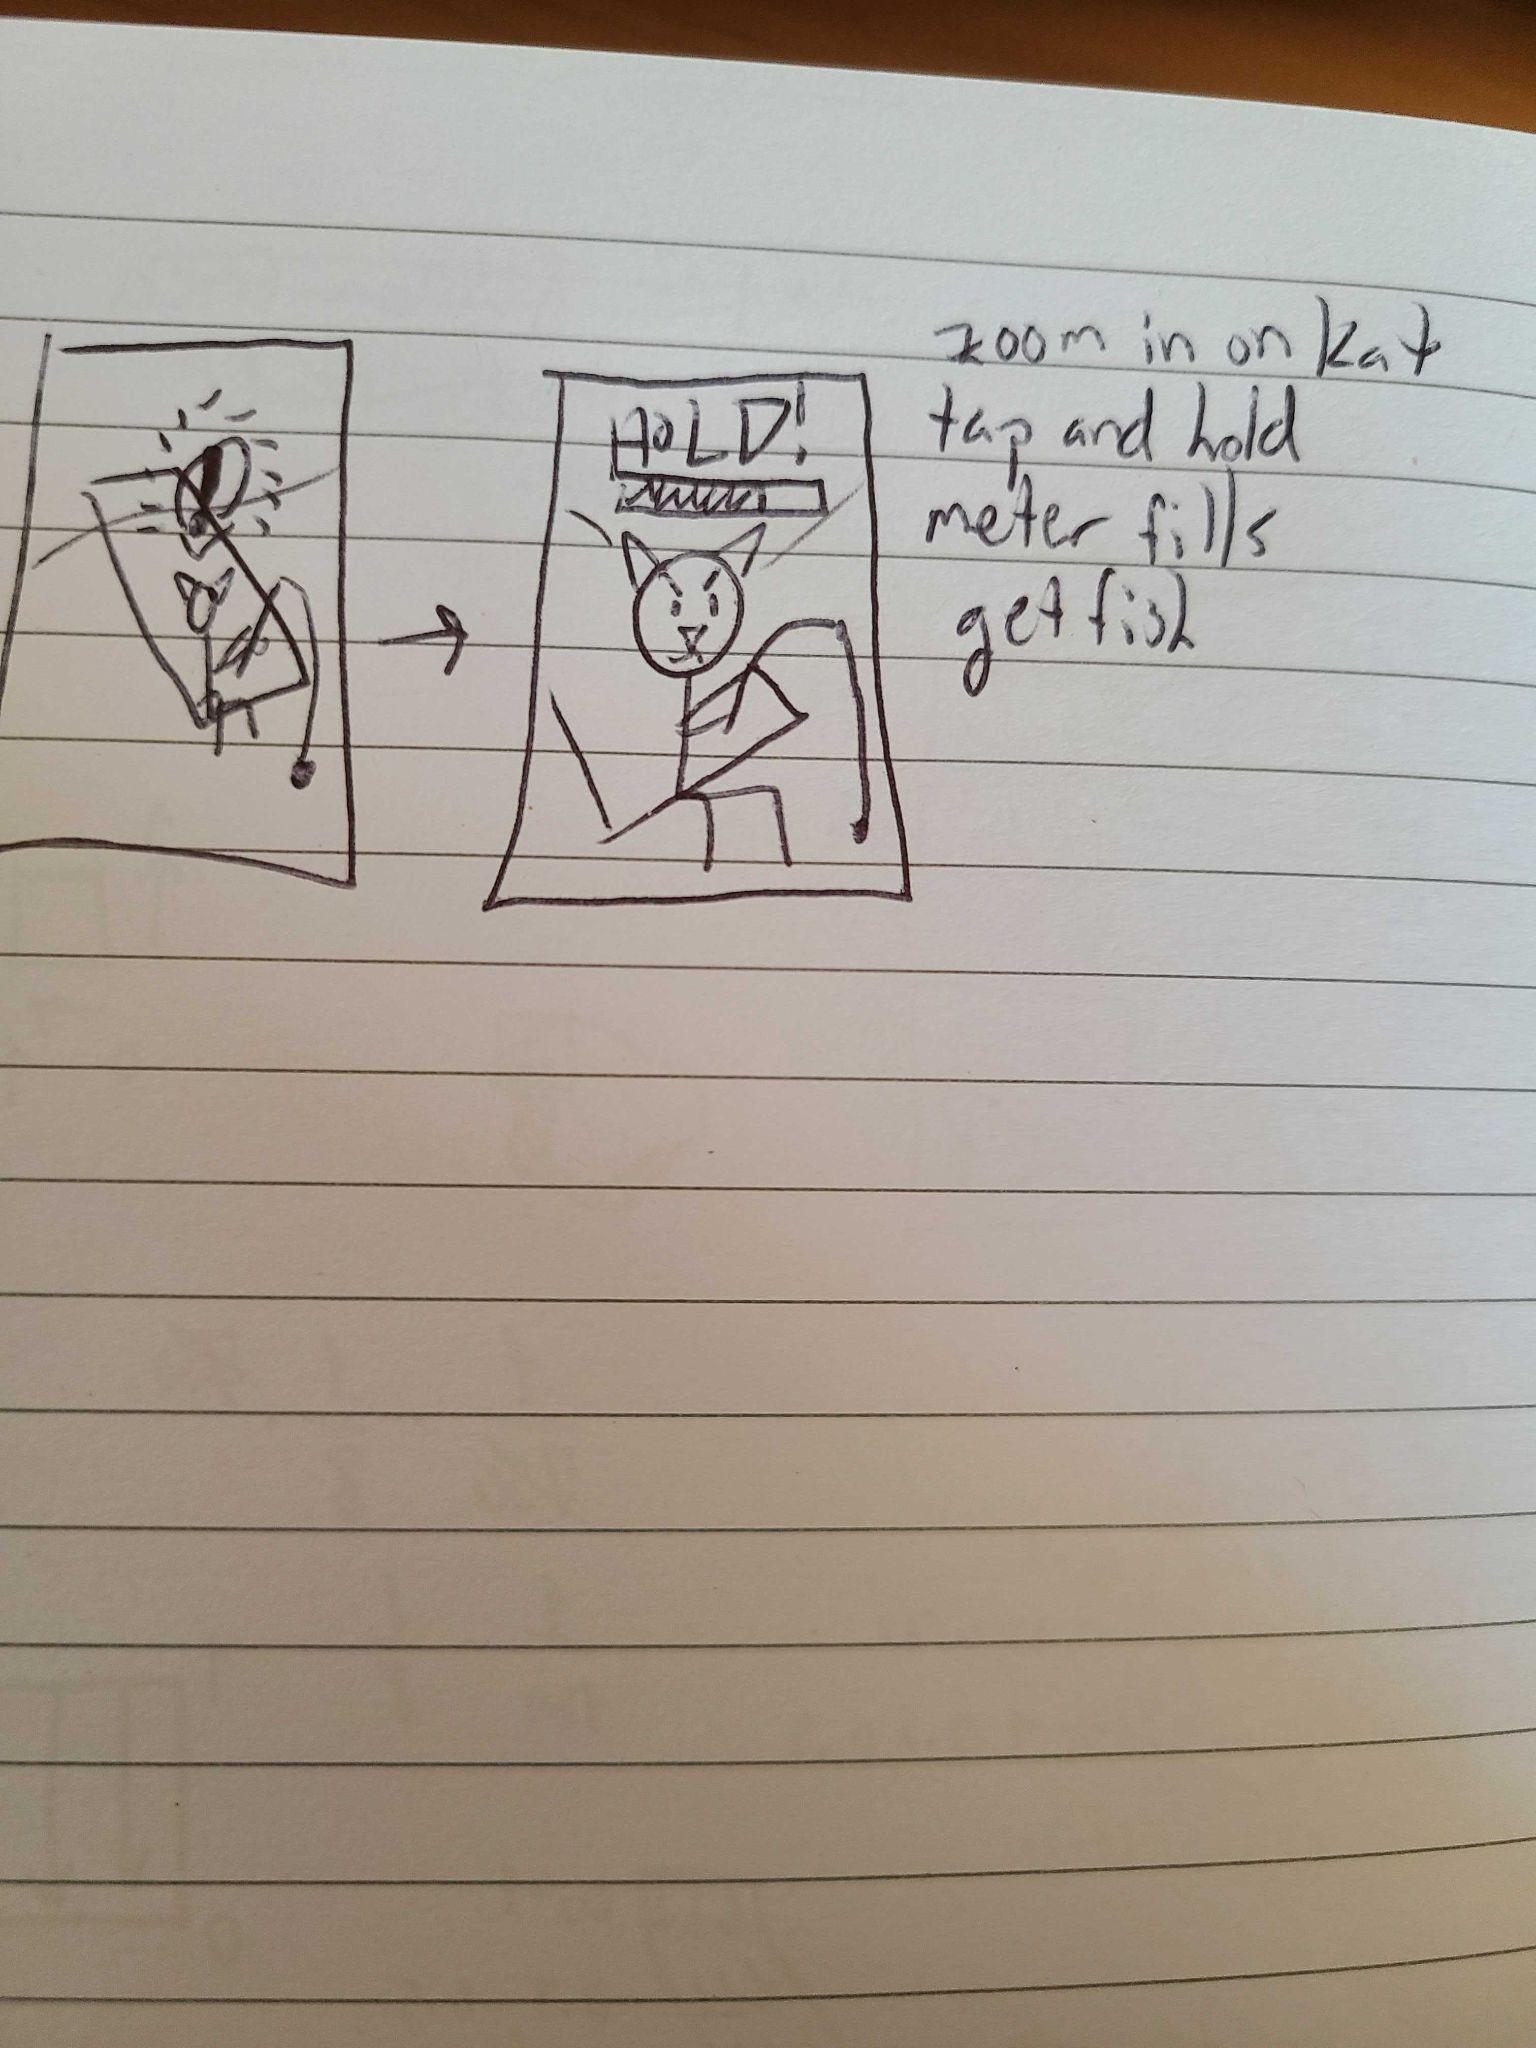 HOLD!
zoom in on kat
tap and hold
meter fills
get fish